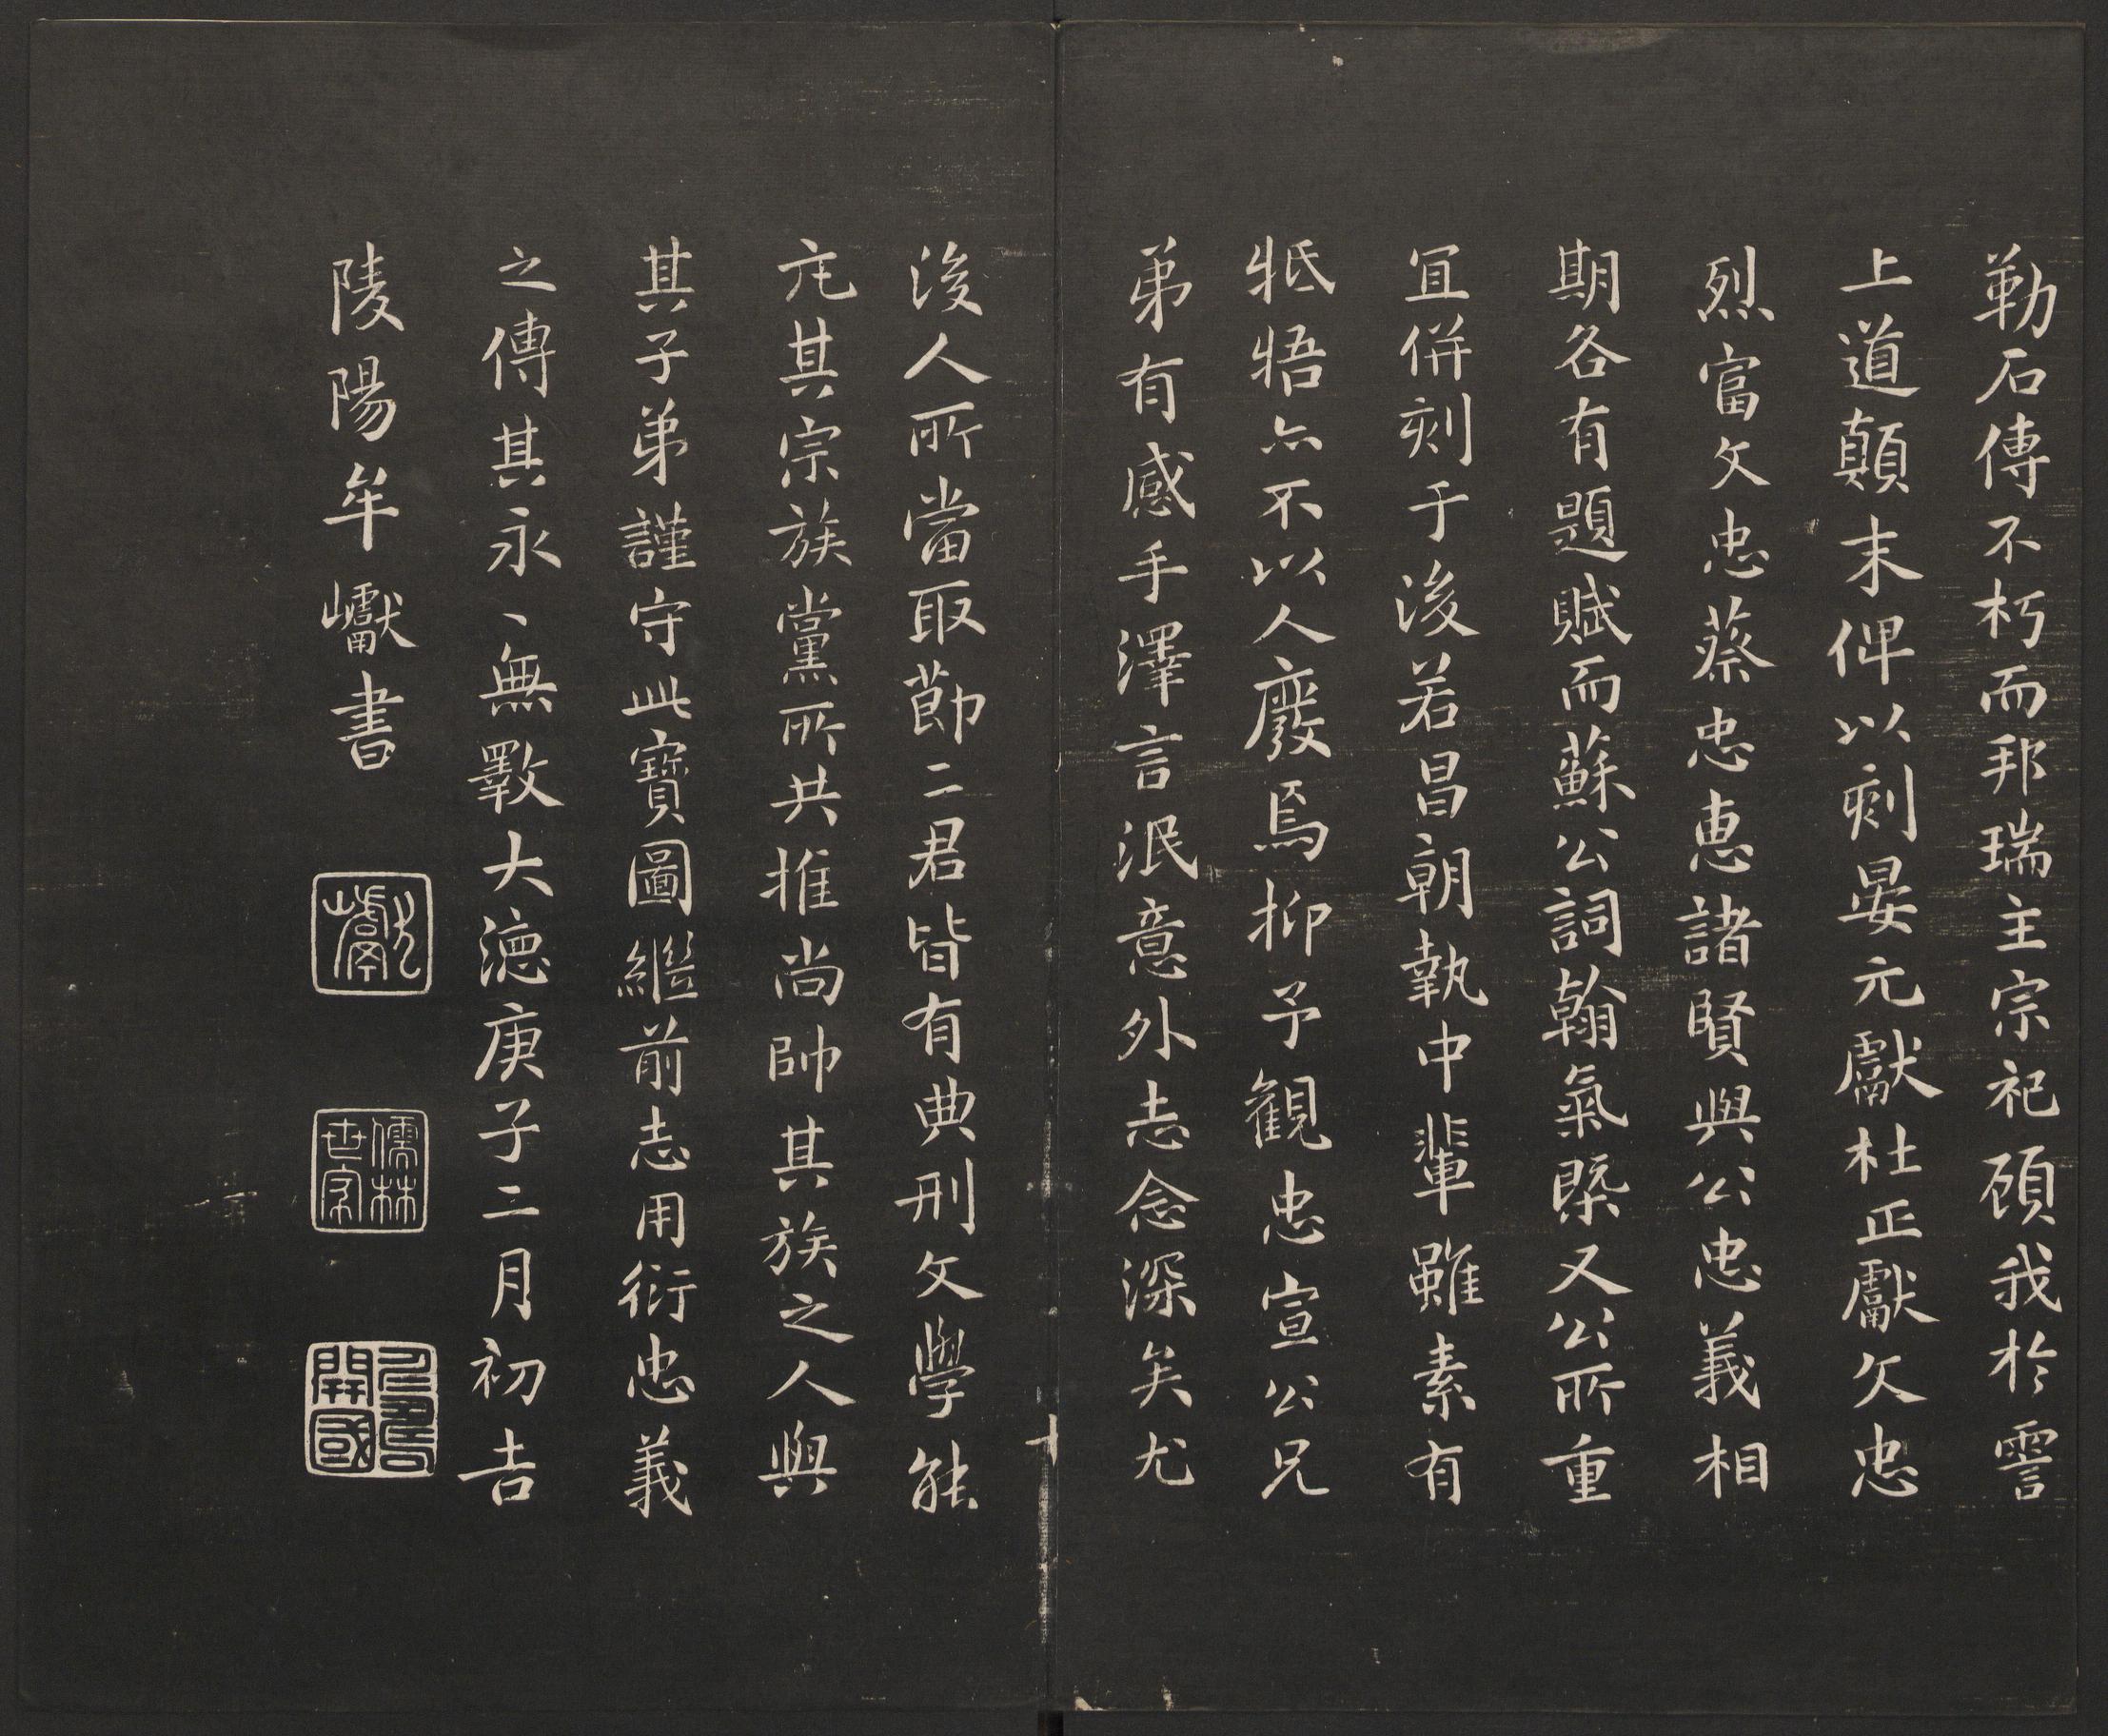 勒石傳不朽而邦瑞主宗祀顾我於霅
上道顛末俾以刻晏元獻杜正獻文忠
烈富文忠蔡忠惠諸賢與公忠義相
期各有題賦而蘇公詞翰氣槩又公所重
宜併刻于後若昌朝執中輩雖素有
牴牾亦不以人廢焉抑予觀忠宣公兄
弟有感手澤言泯意外志念深矣尤
後人所當取節二君皆有典刑文學能
元其宗族黨所共推尚帥其族之人與
其子弟謹守此寶圖繼前志用衍忠義
之傳其永丶無斁大德庚子二月初吉
陵陽牟巘書
儒林世家
開國
十